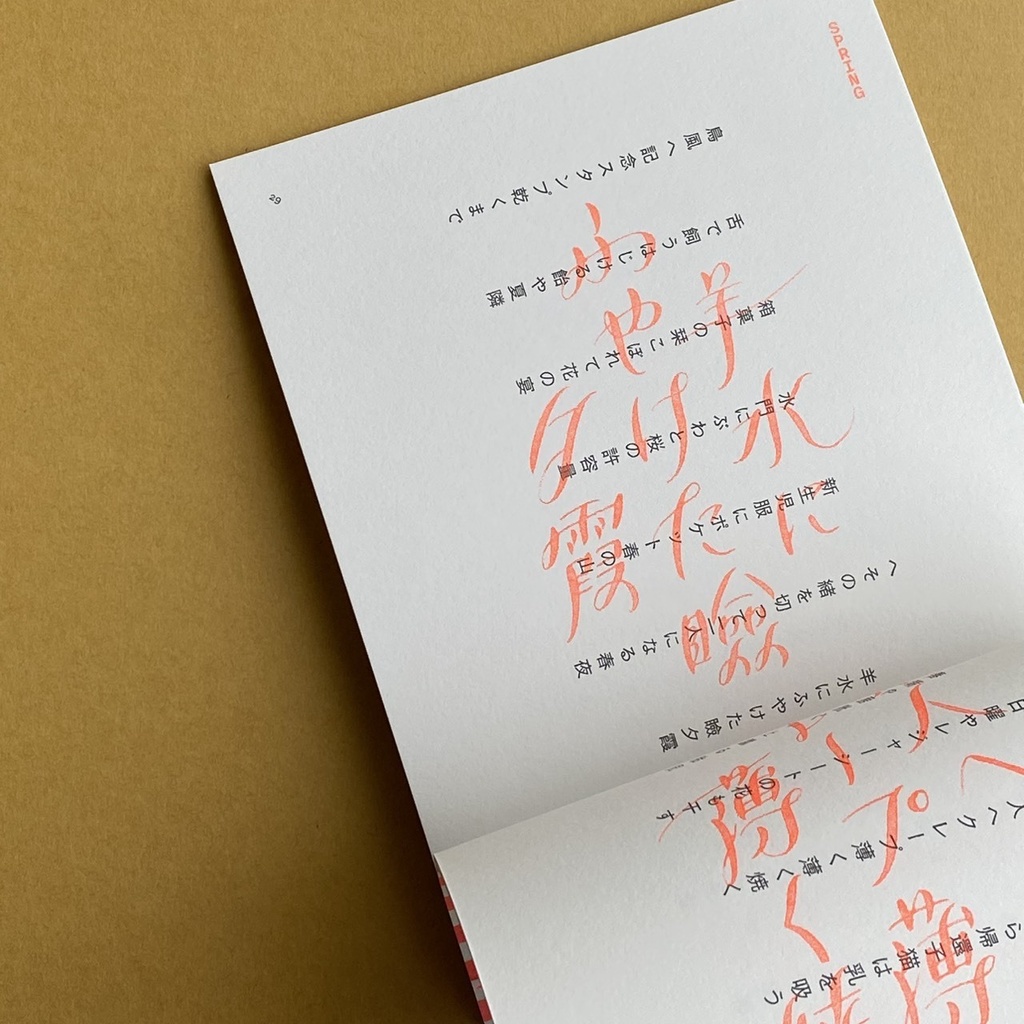 SPRING
ら帰還子猫は乳を吸う
人へクレープ薄く薄く焼く
日曜やレジャーシートの花も干す
羊水にふやけた瞼夕霞
へその緒を切って二人になる春夜
新生児服にポケット春の山
水門にぶわと桜の許容量
箱菓子の栞こぼれて花の宴
舌で飼うはじける飴や夏隣
鳥風へ記念スタンプ乾くまで
羊水に
ふやけた瞼
夕霞
人へ
プ
薄く
薄
29